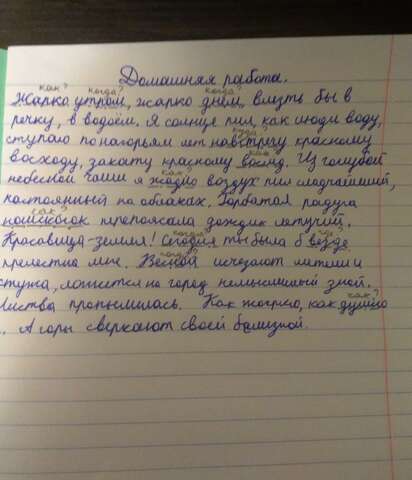 Домашняя работа.
как? когда? когда?
Жарко утром, жарко днём, влезть бы в
речку, в водоём. Я солнце пил, как люди воду,
куда?
ступаю по нагорьям лет навстречу красному
восходу, закату красному вслед. Из голубой
как?
небесной чаши я жадно воздух пил сладчайший,
настоянный на облаках. Горбатая радуга
как?
наискосок препоясала дождик летучий.
когда? где?
Красавица-земля! Сегодня ты была везде
когда?
прелестна мне. Весной исчезают метели и
стужа, ложится на город немыслимый зной.
как?
Листва пропылилась. Как жарко, как душно
. А горы сверкают своей белизной.